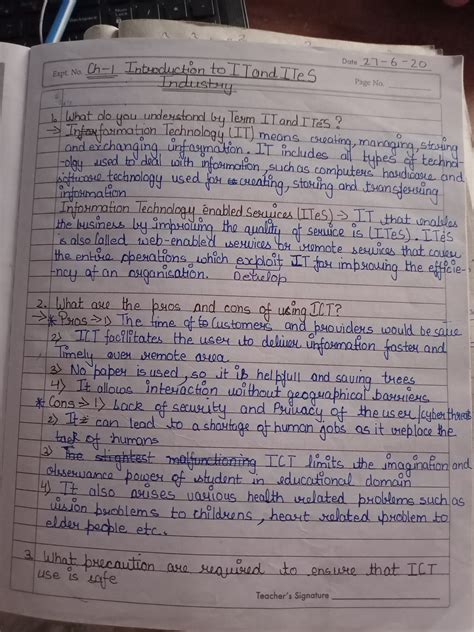 Date 27-6-20
Expt. No. Ch-1 Introduction to IT and ITeS
Page No.
Industry
1. What do you understand by Term IT and ITeS?
→ Infarformation Technology (IT) means creating, managing, storing
and exchanging information. IT includes all types of technol
-ology used to deal with information, such as computers hardware and
software technology used for creating, storing and transferring
information
Information Technology enabled Services (ITeS) → IT that enables
the business by improving the quality of service is (ITeS). ITeS
is also called web-enabled services or remote services that cover
the entire operations which exploit IT for improving the efficie-
ncy of an organisation. Develop
2. What are the pros and cons of using ICT?
→ * Pros → 1) The time of to customers and providers would be save
2) ICT facilitates the user to deliver information faster and
Timely over remote area
3) No paper is used, so it is helpfull and saving trees
4) It allows interaction without geographical barriers
* Cons → 1) Lack of security and Privacy of the user/cyber threats
2) It can lead to a shortage of human jobs as it replace the
task of humans
3) The slightest malfunctioning ICT limits the imagination and
observance power of student in educational domain
4) It also arises various health related problems such as
vision problems to childrens, heart related problem to
elder people etc..
3. What precaution are required to ensure that ICT
use is safe
Teacher's Signature